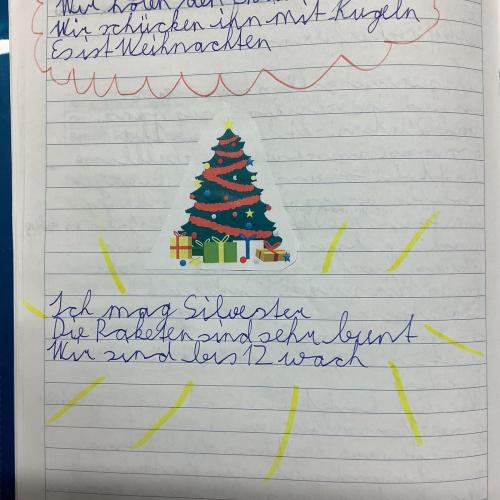 Wir holen den
Wir schücken ihn mit Kugeln
Es ist Weihnachten
Ich mag Silvester
Die Raketen sind sehr bunt
Wir sind bis 12 wach